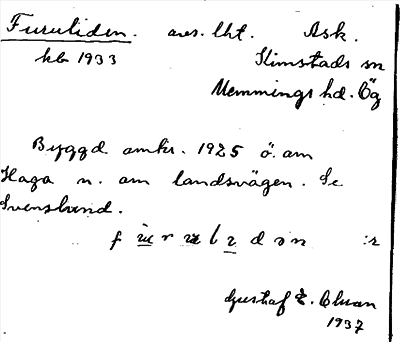 Furuliden. avs. lht. Ask.
kb 1933 Kimstads sn
Memmings hd. Ög
Byggd omkr. 1925 ö. om
Haga n. om landsvägen. Se
Svenslund.
Gustaf E. Olson
1937